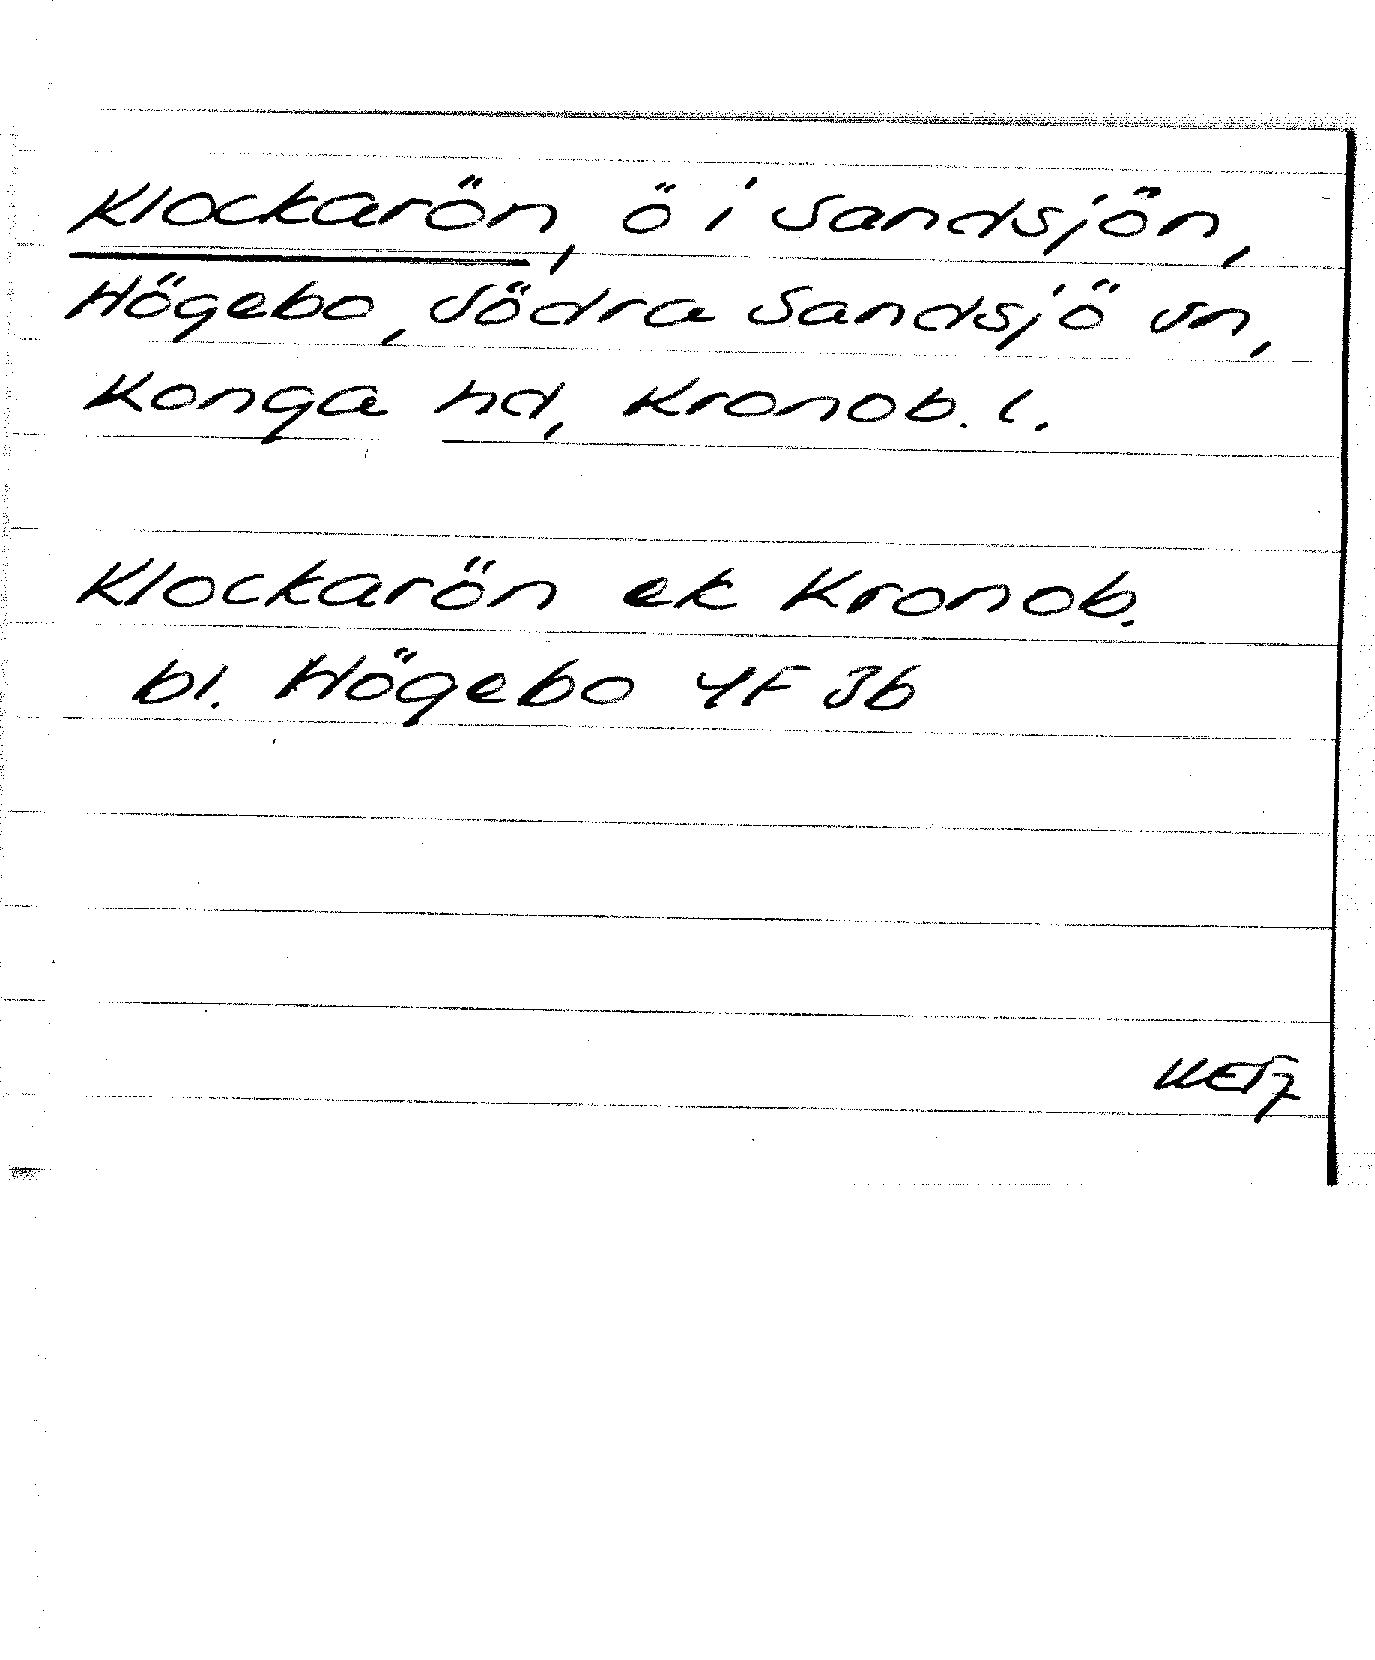 Klockarön, ö i Sandsjön,
Högebo, Södra Sandsjö sn,
Konga hd, Kronob. l.
Klockarön ek Kronob.
bl. Högebo 4F 3b